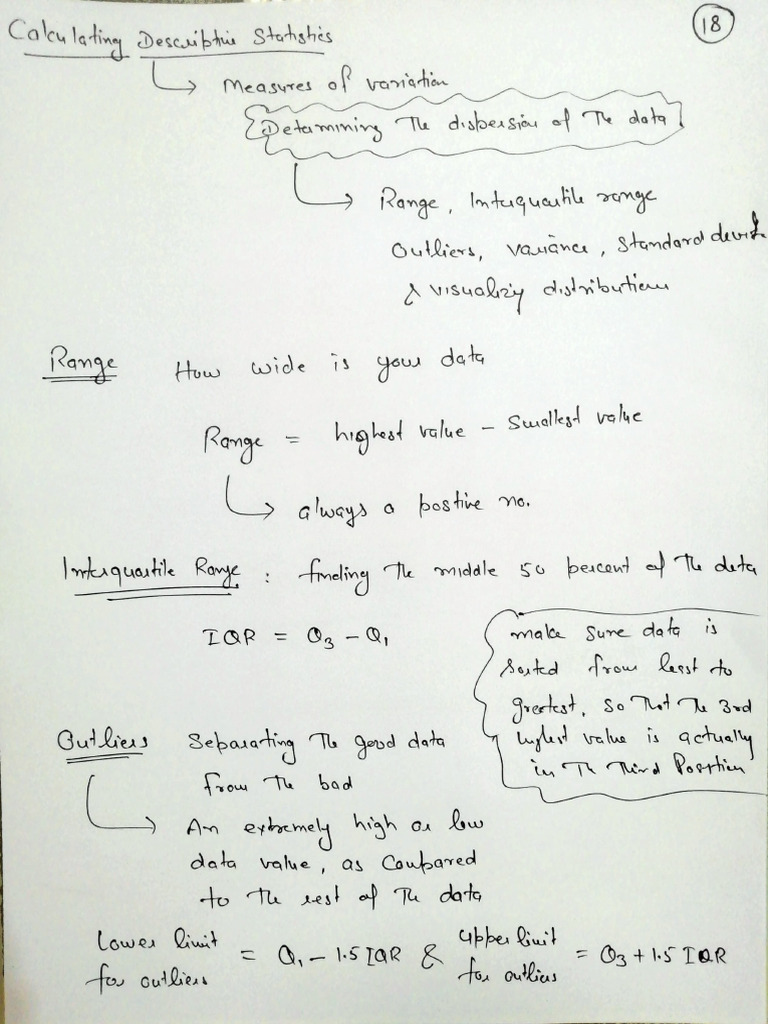 18
Calculating Descriptive Statistics
Measures of variation
Determining The dispersion of The data
Range, Interquartile range
Outliers, variance, Standard
& visualizig distributions
Range How wide is your data
Range = highest value - Smallest value
always a postive no.
Interquartile Range : finding The middle 50 percent of The data
IQR = Q3 - Q1
make sure data is
sorted from least to
greatest, so That The 3rd
highest value is actually
in Th Third Position
Outliers Separating The good data
from The bad
An extremely high or low
data value, as compared
to The rest of The data
Lower limit for outliers = Q1 - 1.5 IQR & Upper limit for outliers = Q3 + 1.5 IQR